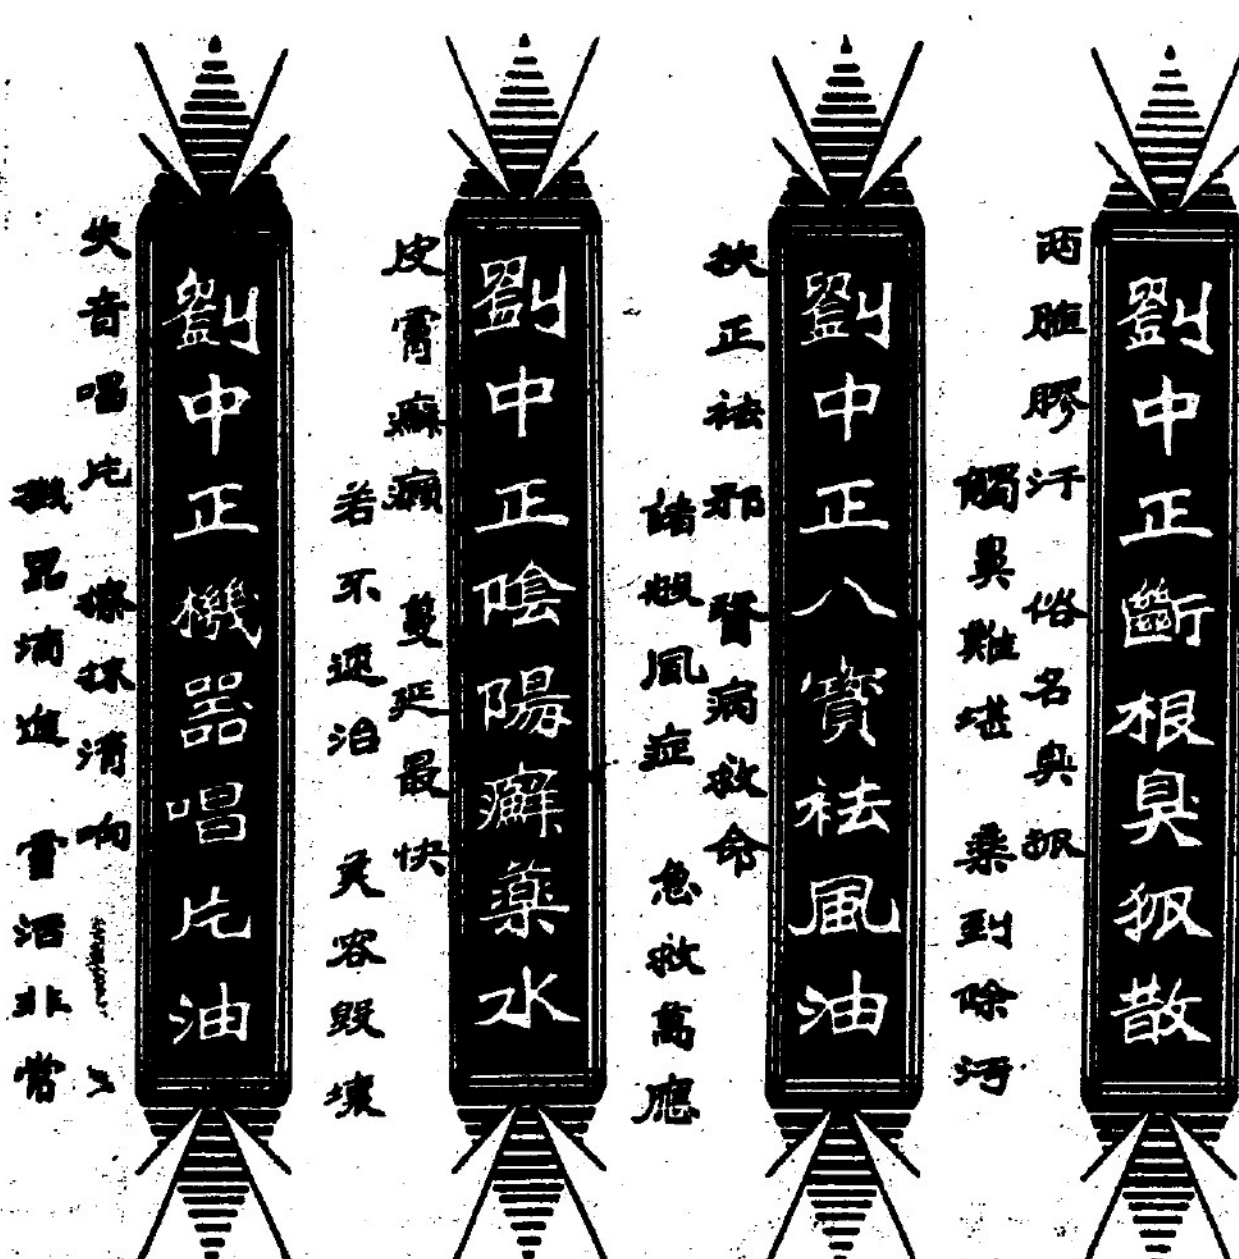 劉中正斷根臭狐散
兩腋膠汗 俗名臭狐
觸鼻難堪 藥到除污
劉中正八寶祛風油
扶正祛邪 醫病救命
諸般風症 急救萬應
劉中正陰陽癬藥水
皮膚癬癩 蔓延最快
若不速治 美容毀壞
劉中正機器唱片油
失音唱片 擦抹清响
機器滴進 靈活非常